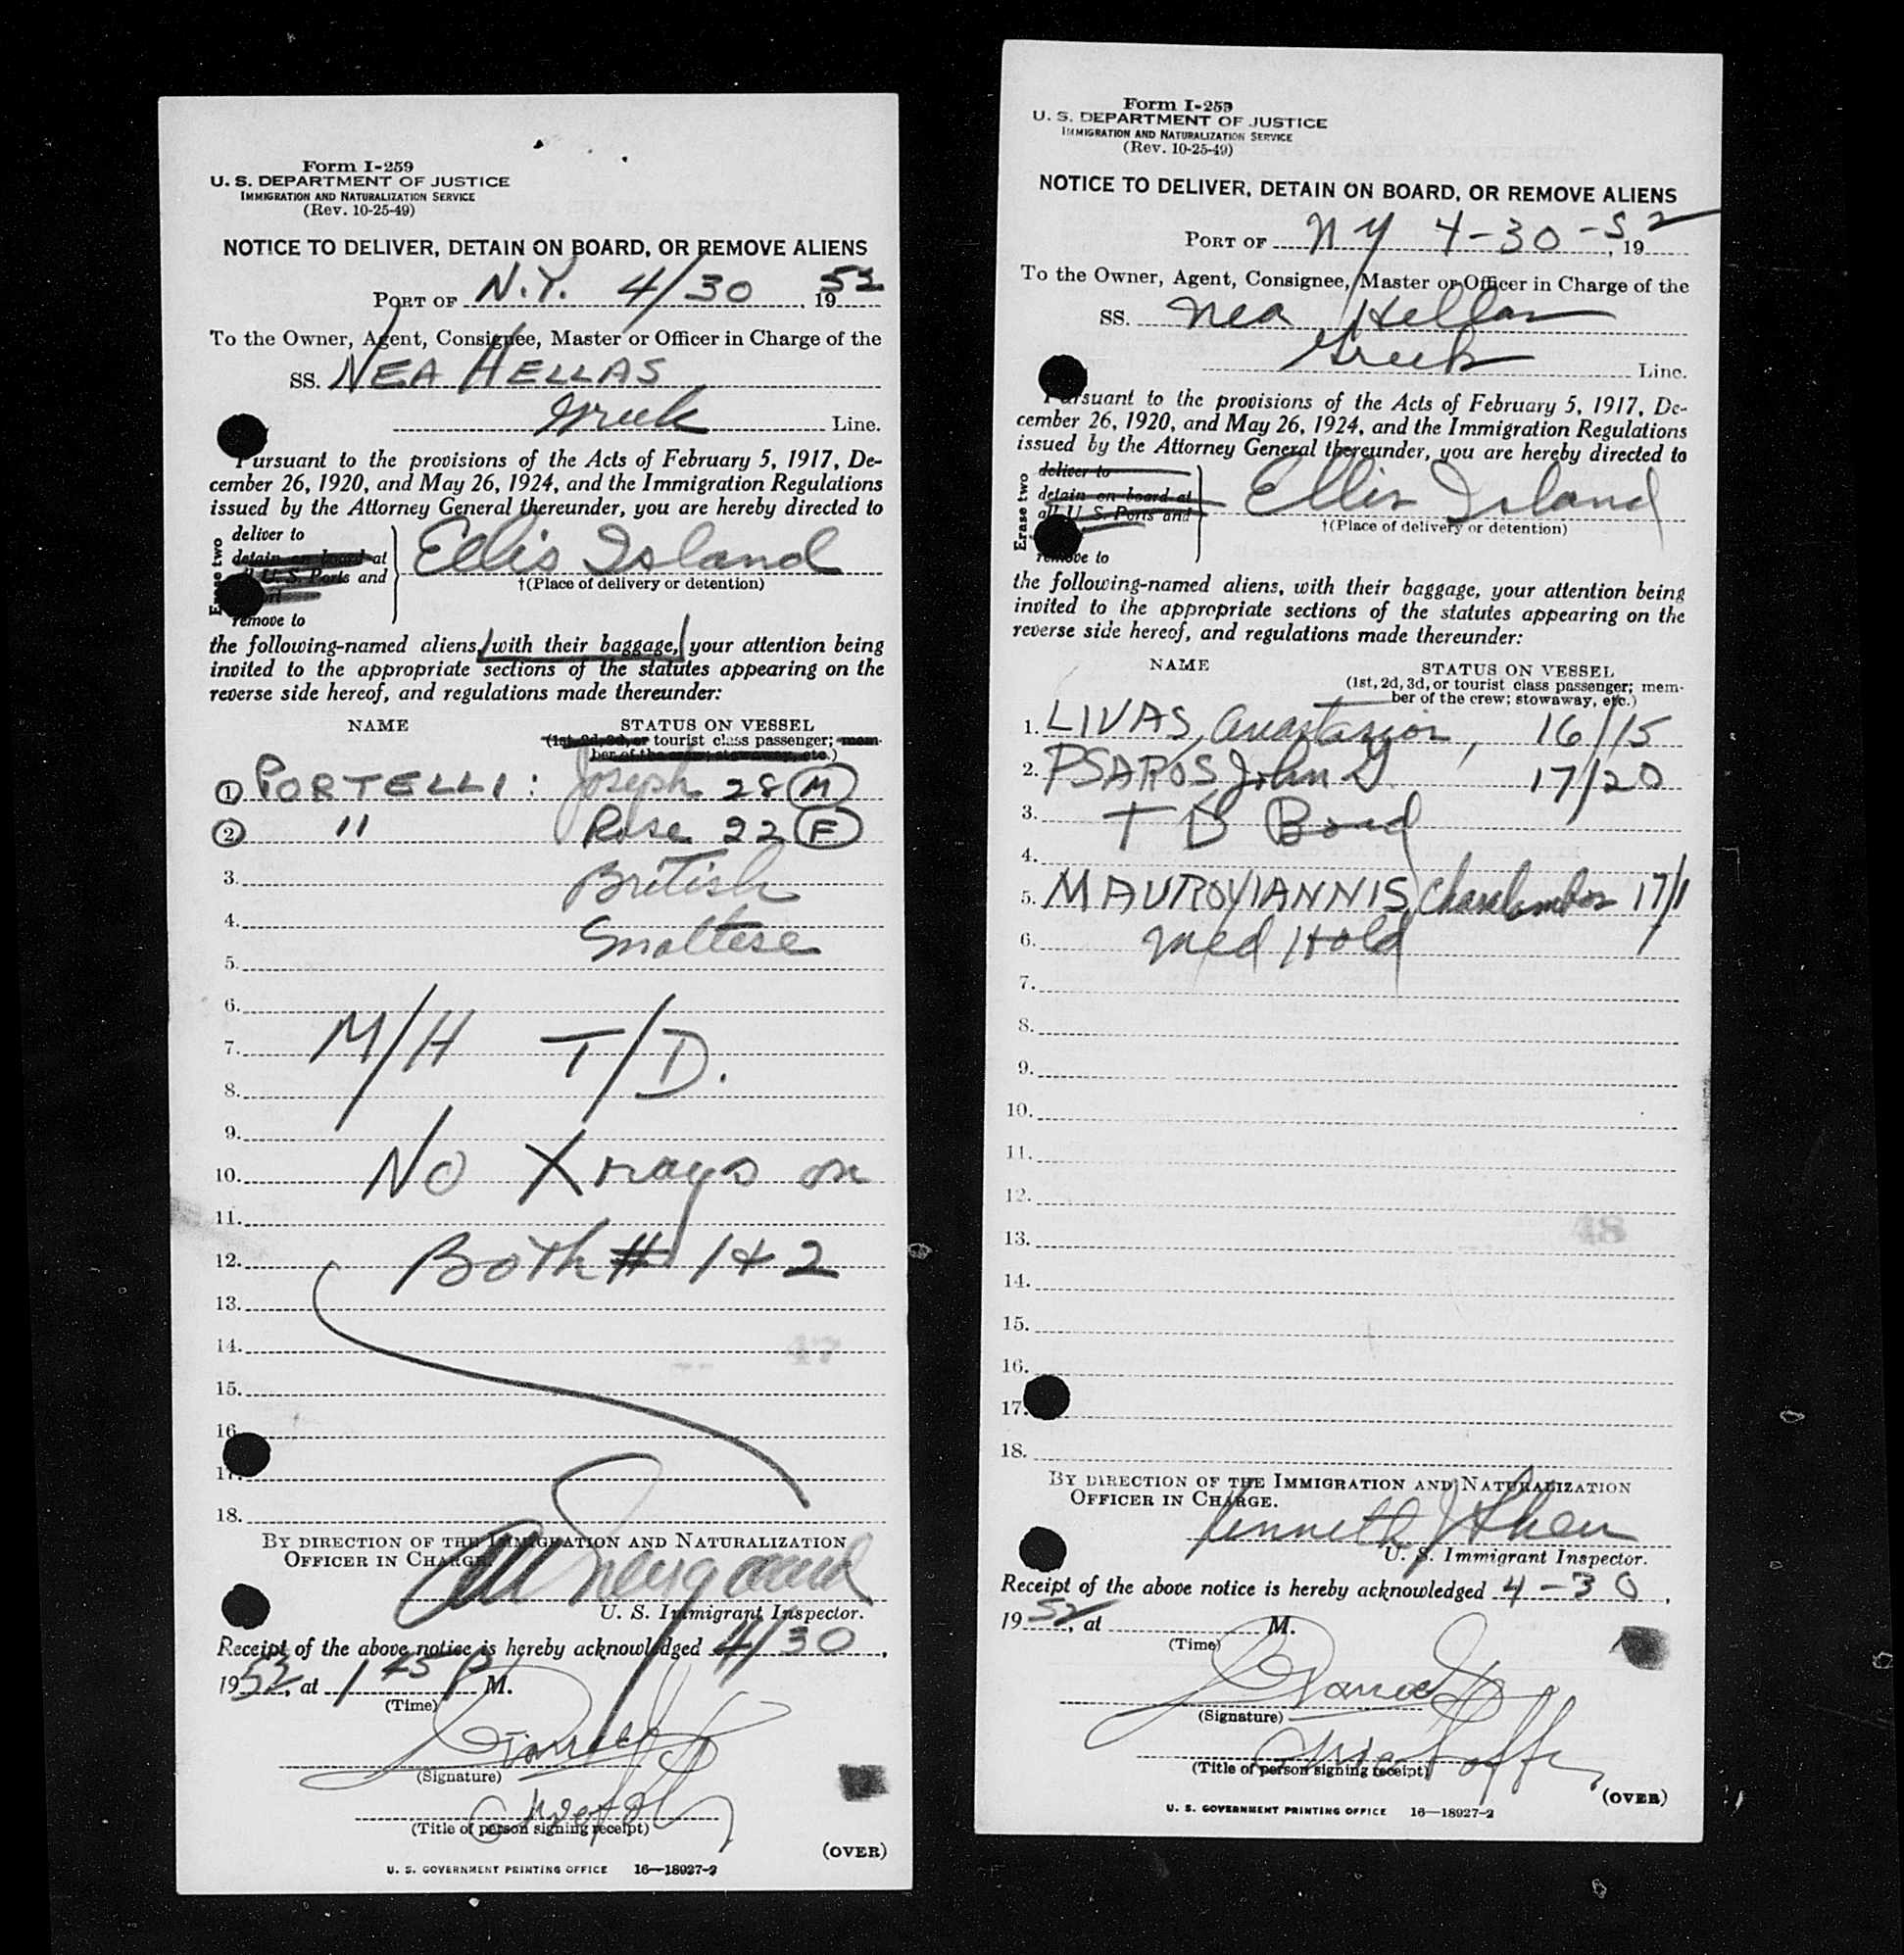 Form I-259
U. S. DEPARTMENT OF JUSTICE
IMMIGRATION AND NATURALIZATION SERVICE
(Rev. 10-25-49)
NOTICE TO DELIVER, DETAIN ON BOARD, OR REMOVE ALIENS
PORT OF N.Y. 4/30, 1952
To the Owner, Agent, Consignee, Master or Officer in Charge of the
SS. NEA HELLAS
Greek Line.
Pursuant to the provisions of the Acts of February 5, 1917, De-
cember 26, 1920, and May 26, 1924, and the Immigration Regulations
issued by the Attorney General thereunder, you are hereby directed to
Erase two
deliver to
detain on board at
all U. S. Ports and
remove to
Ellis Island
†(Place of delivery or detention)
the following-named aliens, with their baggage, your attention being
invited to the appropriate sections of the statutes appearing on the
reverse side hereof, and regulations made thereunder:
NAME STATUS ON VESSEL
(1st, 2d, 3d, or tourist class passenger; mem-
ber of the crew; stowaway, etc.)
1 PORTELLI: Joseph 28 M
2 " Rose 22 F
3. British
4. Maltese
5.
6.
7. M/H T/D.
8.
9.
10. No Xrays on
11.
12. Both # 1 + 2
13.
14. 47
15.
16.
17.
18.
BY DIRECTION OF THE IMMIGRATION AND NATURALIZATION
OFFICER IN CHARGE.
U. S. Immigrant Inspector.
Receipt of the above notice is hereby acknowledged 4/30,
1952, at 1 45 P M.
(Time)
(Signature)
(Title of person signing receipt)
(OVER)
U. S. GOVERNMENT PRINTING OFFICE 16—18927-2
Form I-259
U. S. DEPARTMENT OF JUSTICE
IMMIGRATION AND NATURALIZATION SERVICE
(Rev. 10-25-49)
NOTICE TO DELIVER, DETAIN ON BOARD, OR REMOVE ALIENS
PORT OF NY 4-30-52, 19
To the Owner, Agent, Consignee, Master or Officer in Charge of the
SS. Nea Hellas
Greek Line.
Pursuant to the provisions of the Acts of February 5, 1917, De-
cember 26, 1920, and May 26, 1924, and the Immigration Regulations
issued by the Attorney General thereunder, you are hereby directed to
Erase two
deliver to
detain on board at
all U. S. Ports and
remove to
Ellis Island
†(Place of delivery or detention)
the following-named aliens, with their baggage, your attention being
invited to the appropriate sections of the statutes appearing on the
reverse side hereof, and regulations made thereunder:
NAME STATUS ON VESSEL
(1st, 2d, 3d, or tourist class passenger; mem-
ber of the crew; stowaway, etc.)
1. LIVAS, Anastasios, 16/15
2. PSAROS, John G. 17/20
3. T D Board
4.
5. MAUROYIANNIS, Charalambos 17/1
6. Med Hold
7.
8.
9.
10.
11.
12.
13. 48
14.
15.
16.
17.
18.
BY DIRECTION OF THE IMMIGRATION AND NATURALIZATION
OFFICER IN CHARGE.
Kenneth J
U. S. Immigrant Inspector.
Receipt of the above notice is hereby acknowledged 4-30,
1952, at M.
(Time)
(Signature)
(Title of person signing receipt)
(OVER)
U. S. GOVERNMENT PRINTING OFFICE 16—18927-2